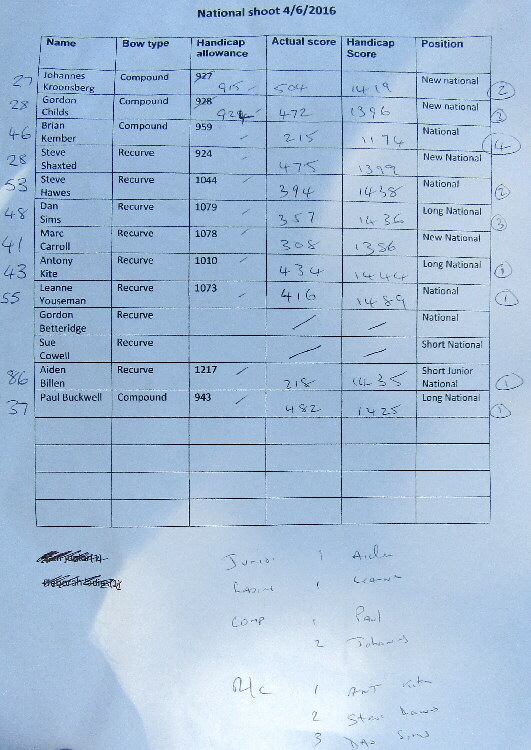 National shoot 4/6/2016
Name Bow type Handicap allowance Actual score Handicap Score Position
27 Johannes Kroonsberg Compound 927 915 504 1419 New national 2
28 Gordon Childs Compound 928 924 472 1396 New national 3
46 Brian Kember Compound 959 215 1174 National 4
28 Steve Shaxted Recurve 924 475 1399 New National
53 Steve Hawes Recurve 1044 394 1438 National 2
48 Dan Sims Recurve 1079 357 1436 Long National 3
41 Marc Carroll Recurve 1078 308 1386 New National
43 Antony Kite Recurve 1010 434 1444 Long National 1
55 Leanne Youseman Recurve 1073 416 1489 National 1
Gordon Betteridge Recurve / / National
Sue Cowell Recurve / / Short National
86 Aiden Billen Recurve 1217 218 1435 Short Junior National 1
37 Paul Buckwell Compound 943 482 1425 Long National 1
Junior 1 Aiden
Ladies 1 Leanne
Comp 1 Paul
2 Johannes
R/c 1 Ant Kite
2 Steve Hawes
3 Dan Sims